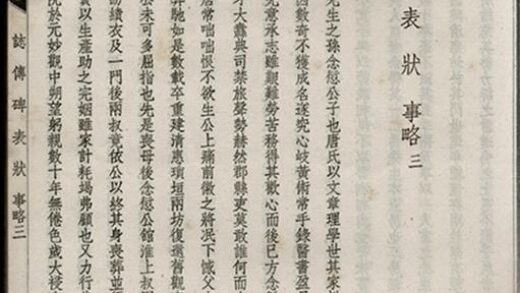 表狀 事略三
先生之孫念慇公子也唐氏以文章理學世其家
因數奇不獲成名遂究心岐黃術常手錄醫書盈
克意承志雖艱難勞苦務得其歡心而後已方念
才大蠹典司禁旅聲勢赫然郡縣吏莫敢誰何而
居常咄咄恨不欲生公上痛前徽之將泯下慽父
奔馳如是數載卒重建清惠瑣垣兩坊復還舊觀
公未可多屈指也先是喪母後念慇公館淮上叔
劬績衣及一門後兩叔竟依公以終其身喪葬並
以生產助之完姻雖家計耗塲弗顧也又力行
於元妙觀中朔望躬親數十年無倦色歲大祲
誌傳碑表狀 事略三